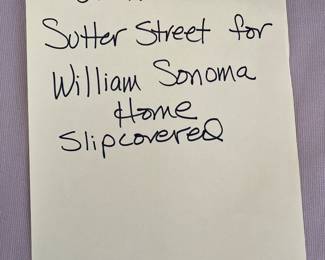 Sutter Street for
William Sonoma
Home
Slipcovered